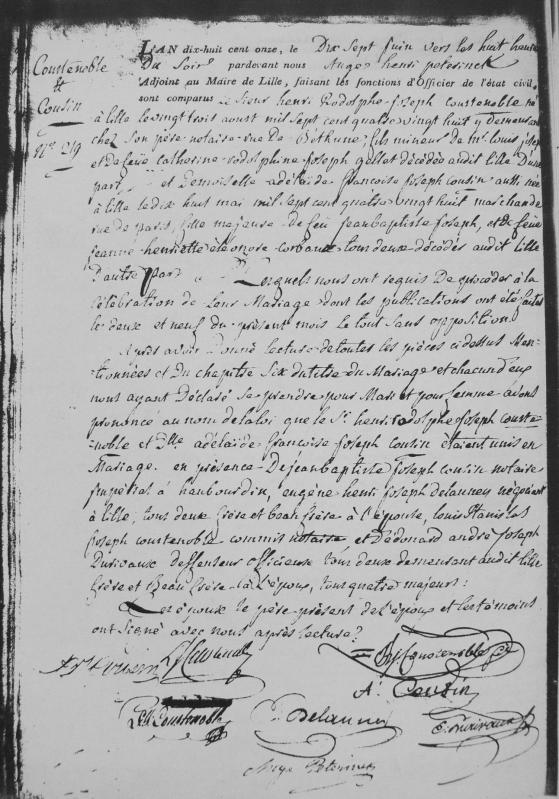 Courtenoble
&
Cousin
N.° 219
L'AN dix-huit cent onze, le Dix Sept Juin vers les huit heures
Du Soir pardevant nous Ange henri peterinck
Adjoint au Maire de Lille, faisant les fonctions d'Officier de l'état civil,
sont comparus Le Sieur henri Rodolphe Joseph Courtenoble né
à lille le vingt trois aoust mil Sept cent quatre vingt huit y demeurant
chez Son père notaire rue De Béthune fils mineur de mr. louis joseph
et de feüe catherine rodolphine Joseph décédée audit lille D'une
part et Demoiselle adélaïde françoise Joseph Cousin aussi née
à lille le dix huit mai mil Sept cent quatre vingt huit marchande
rue de paris, fille majeure de feu jean baptiste Joseph, et de feüe
jeanne henriette éléonore Corbaux tous deux décédés audit lille
D'autre part Lesquels nous ont requis De procéder à la
Célébration de Leur Mariage dont les publications ont été faites
le deux et neuf du présent mois le tout Sans opposition.
Après avoir Donné lecture de toutes les pièces cidessus Men-
tionnées et Du chapitre Six du titre Du Mariage et chacun d'eux
nous ayant Déclaré se prendre pour Mari et pour femme avons
prononcé au nom de la loi que le Sr. henri rodolphe joseph courte-
noble et Dlle. adélaïde françoise Joseph Cousin étaient unis en
Mariage. en présence De jean baptiste Joseph Cousin notaire
Impérial à haubourdin, eugène henri Joseph delannoy négociant
à lille, tous deux frère et beau frère à l'épouse, louis Stanislas
Joseph Courtenoble commis notaire et D'édouard andré Joseph
Duriaux deffenseur officieux tous deux demeurant audit lille
frère et Beau frère à l'époux, tous quatre majeurs :
Les époux le père présent de l'époux et les témoins
ont Signé avec nous après lecture.
Courtenoble
A. Cousin
Delannoy
Ange Peterinck